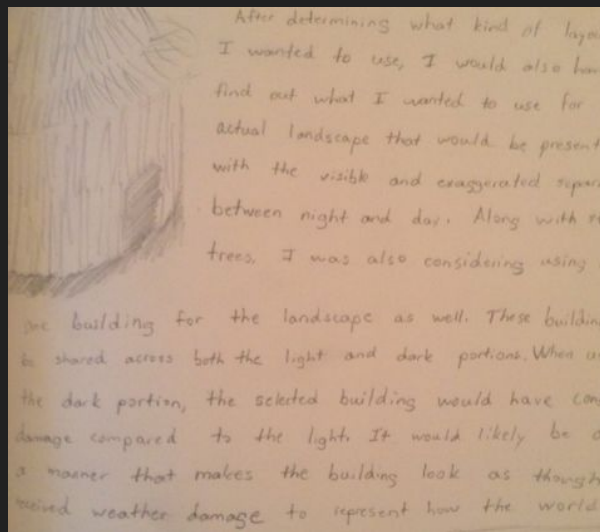 After determining what kind of
I wanted to use, I would also
find out what I wanted to use for
actual landscape that would be
with the visible and exaggerated
between night and day. Along with
trees, I was also considering using
one building for the landscape as well. These
be shared across both the light and dark portions. When
the dark portion, the selected building would have
damage compared to the light. It would likely be
a manner that makes the building look as
received weather damage to represent how the world